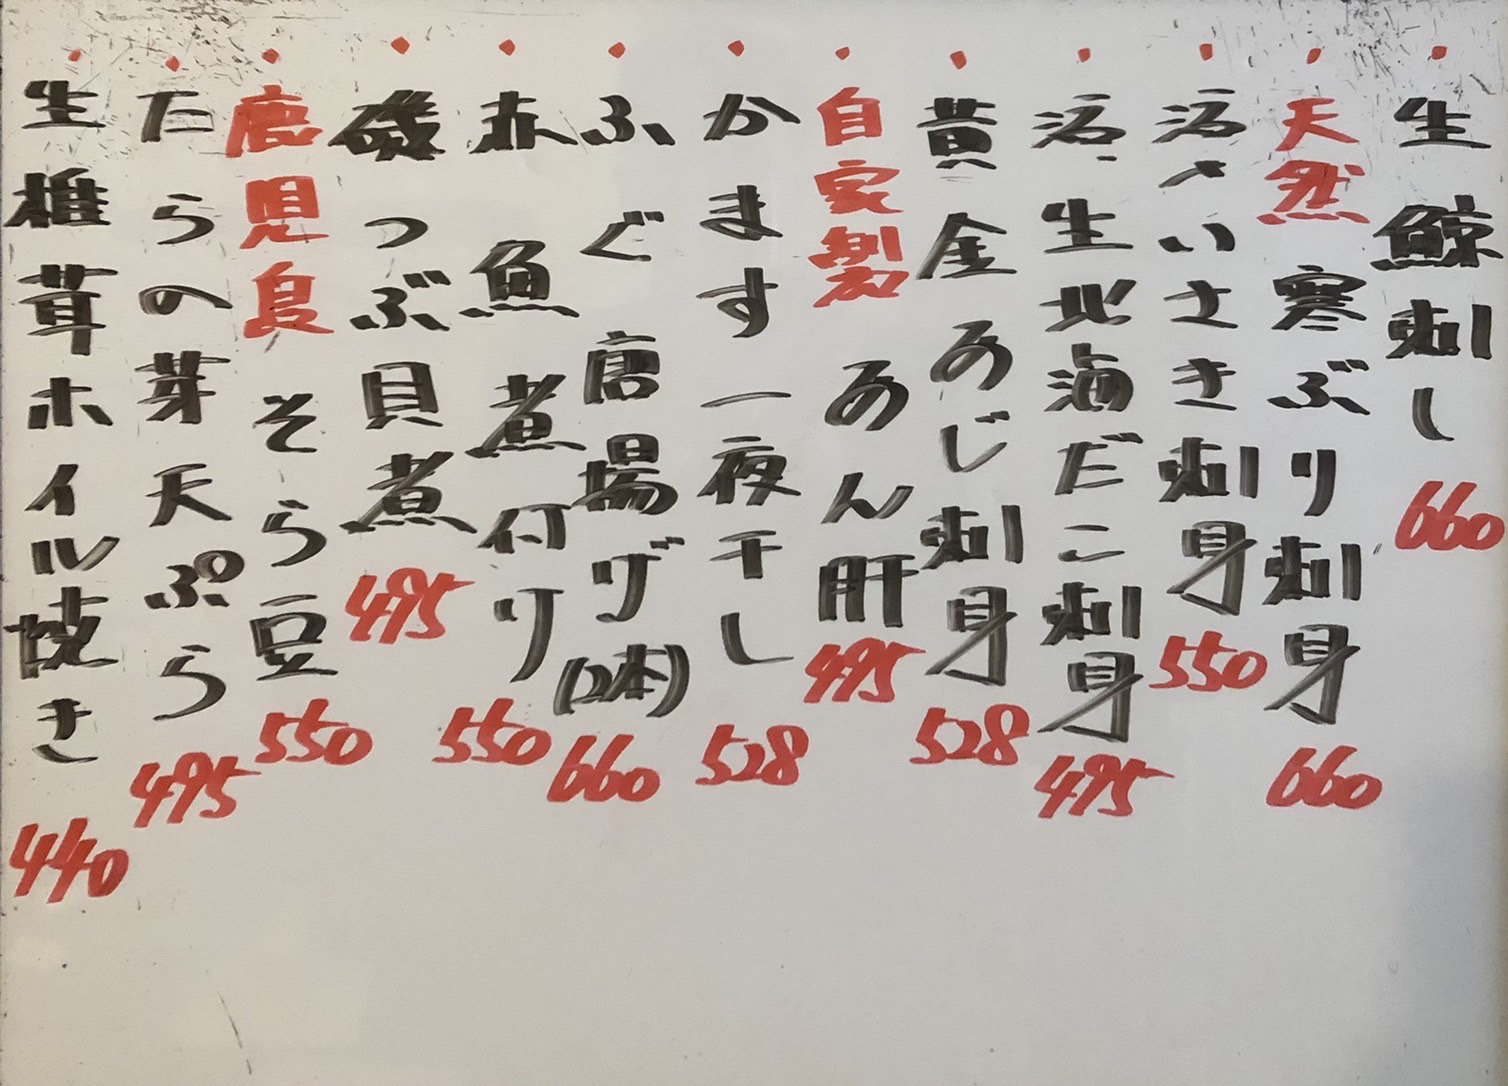 ・生鯨刺し 660
・天然 寒ぶり刺身 660
・活〆いさき刺身 550
・活生北海だこ刺身 495
・黄金あじ刺身 528
・自家製 あん肝 495
・かます一夜干し 528
・ふぐ唐揚げ(2本) 660
・赤魚煮付け 550
・磯つぶ貝煮 495
・鹿児島 そら豆 550
・たらの芽天ぷら 495
・生椎茸ホイル焼き 440